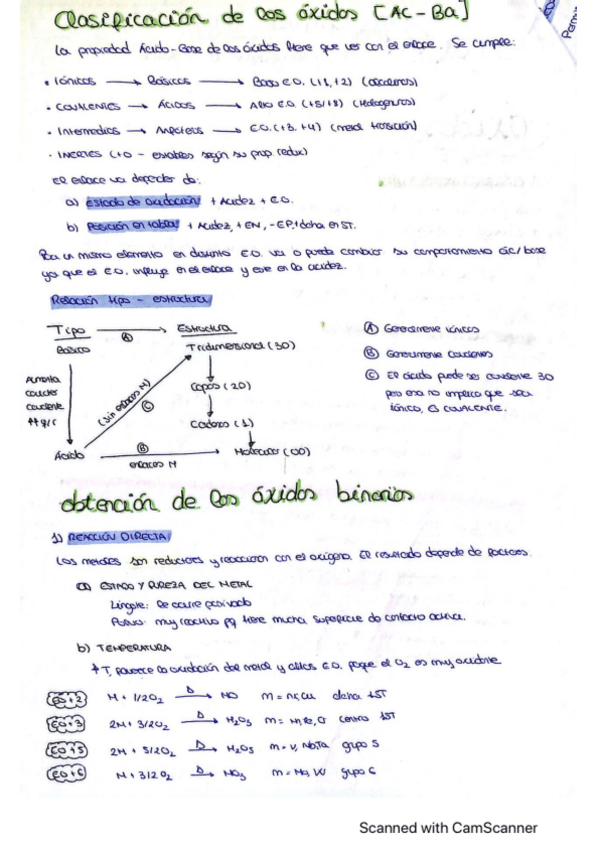 Clasificación de los óxidos [AC-Ba]
La propiedad Ácido-Base de los óxidos tiene que ver con el enlace. Se cumple:
• Iónicos → Básicos → Bajo E.O. (+1,+2) (alcalinos)
• COVALENTES → ÁCIDOS → Alto E.O. (+5/+8) (Halógenos)
• Intermedios → Anfóteros → E.O. (+3,+4) (metal transición)
• INERTES (+0 - estables según su prop. redox)
El enlace va depender de:
a) Estado de oxidación: + Acidez + E.O.
b) Posición en tabla: + Acidez, + EN, - EP, + dcha en ST.
Para un mismo elemento en distinto E.O. va a poder cambiar su comportamiento ác/base
ya que el E.O. influye en el enlace y ese en la acidez.
Relación tipo - estructura
Tipo → Estructura
A
Básico
Tridimensional (3D)
Aumenta
carácter
covalente
↑↑ q/r
(sin enlaces M)
C
Capas (2D)
Cadenas (1)
Ácido
B
enlaces M
Moléculas (0D)
A Generalmente iónicos
B Generalmente Covalentes
C El ácido puede ser covalente 3D
pero eso no implica que sea
iónico, es COVALENTE.
obtención de los óxidos binarios
1) REACCIÓN DIRECTA
Los metales son reductores y reaccionan con el oxígeno. El resultado depende de factores.
a) ESTADO Y PUREZA DEL METAL
Lingote: Se ocurre pasivado
Polvo: muy reactivo pq tiene mucha superficie de contacto activa.
b) TEMPERATURA
↑T, favorece la oxidación del metal y altos E.O. porque el O₂ es muy oxidante
EO+2 M + 1/2O₂ →Δ MO M = Ni, Cu dcha 1ST
EO+3 2M + 3/2O₂ →Δ M₂O₃ M = Mn, Fe, Cr centro 1ST
EO+5 2M + 5/2O₂ →Δ M₂O₅ M = V, Nb, Ta grupo 5
EO+6 M + 3/2O₂ →Δ MO₃ M = Mo, W grupo 6
Scanned with CamScanner